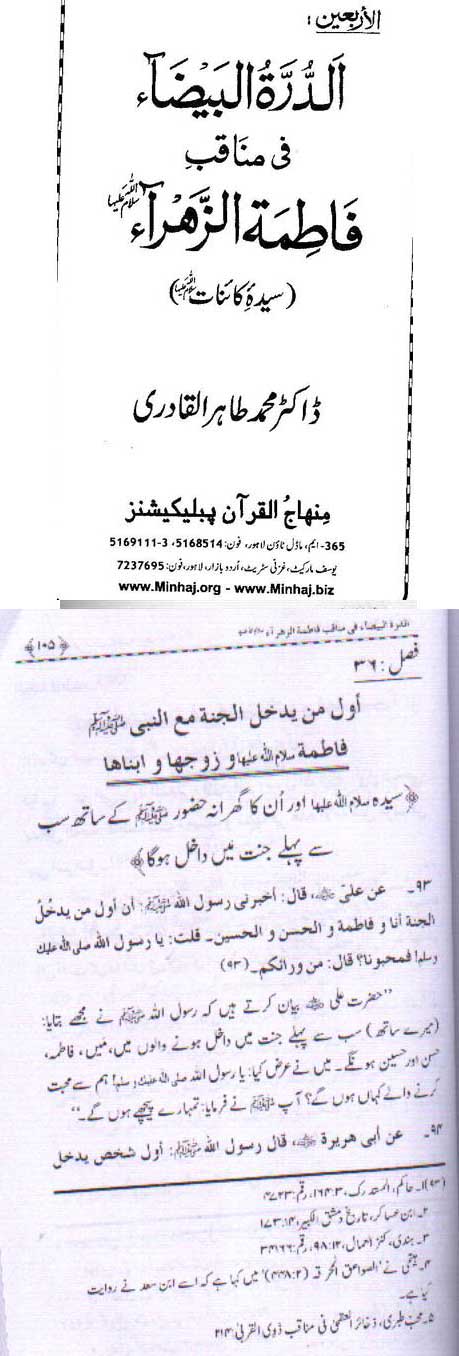 الأربعین :
اَلدُّرَّةُ الْبَيْضَآء
فِي مَنَاقِبِ
فَاطِمَةَ الزَّهْرَآء سلام اللہ علیہا
(سیدۂ کائنات سلام اللہ علیہا)
ڈاکٹر محمد طاہر القادری
منہاج القرآن پبلیکیشنز
365- ایم، ماڈل ٹاؤن لاہور، فون: 5168514، 3-5169111
یوسف مارکیٹ، غزنی سٹریٹ، اُردو بازار، لاہور، فون: 7237695
www.Minhaj.org - www.Minhaj.biz
الدرة البیضاء فی مناقب فاطمة الزھراء سلام اللہ علیہا
﴿۱۰۵﴾
فصل : ۳۶
أول من يدخل الجنة مع النبی ﷺ
فاطمة سلام اللہ علیہا و زوجها و ابناها
﴿سیدہ سلام اللہ علیہا اور اُن کا گھرانہ حضور ﷺ کے ساتھ سب
سے پہلے جنت میں داخل ہوگا﴾
۹۳۔ عن علیّ ؓ، قال: أخبرنی رسول اللہ ﷺ: أن أول من يدخلُ
الجنة أنا و فاطمة و الحسن و الحسین۔ قلت: یا رسول اللہ صلی اللہ علیک
وسلم! فمحبونا؟ قال: من ورائکم۔ (۹۳)
”حضرت علی ؓ بیان کرتے ہیں کہ رسول اللہ ﷺ نے مجھے بتایا:
(میرے ساتھ) سب سے پہلے جنت میں داخل ہونے والوں میں، مَیں، فاطمہ،
حسن اور حسین ہونگے۔ میں نے عرض کیا: یا رسول اللہ صلی اللہ علیک وسلم! ہم سے محبت
کرنے والے کہاں ہوں گے؟ آپ ﷺ نے فرمایا: تمہارے پیچھے ہوں گے۔“
۹۴۔ عن أبی هریرة ؓ، قال رسول اللہ ﷺ: أول شخص یدخل
(۹۳) ۱۔ حاکم، المستدرک، ۳: ۱۶۴، رقم: ۴۷۲۳
۲۔ ابن عساکر، تاریخ دمشق الکبیر، ۱۴: ۱۷۳
۳۔ ہندی، کنز العمال، ۱۲: ۹۸، رقم: ۳۴۱۶۶
۴۔ ہیتمی نے ’الصواعق المحرقہ (۲: ۴۴۸)‘ میں کہا ہے کہ اسے ابن سعد نے روایت
کیا ہے۔
۵۔ محب طبری، ذخائر العقبیٰ فی مناقب ذوی القربیٰ: ۲۱۴